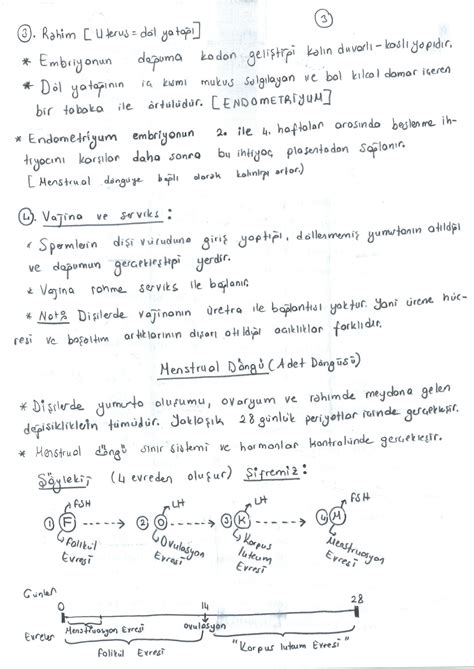 3
3. Rahim [Uterus = döl yatağı]
* Embriyonun doğuma kadar geliştiği kalın duvarlı-kaslı yapıdır.
* Döl yatağının iç kısmı mukus salgılayan ve bol kılcal damar içeren
bir tabaka ile örtülüdür. [ENDOMETRİYUM]
* Endometriyum embriyonun 2. ile 4. haftalar arasında beslenme ih-
tiyacını karşılar daha sonra bu ihtiyaç plasentadan sağlanır.
[Menstrual döngüye bağlı olarak kalınlığı artar.]
4. Vajina ve serviks:
* Spermlerin dişi vücuduna giriş yaptığı, döllenmemiş yumurtanın atıldığı
ve doğumun gerçekleştiği yerdir.
* Vajina rahme serviks ile bağlanır.
* Not: Dişilerde vajinanın üretra ile bağlantısı yoktur. Yani üreme hüc-
resi ve boşaltım artıklarının dışarı atıldığı açıklıklar farklıdır.
Menstrual Döngü (Adet Döngüsü)
* Dişilerde yumurta oluşumu, ovaryum ve rahimde meydana gelen
değişikliklerin tümüdür. Yaklaşık 28 günlük periyotlar içinde gerçekleşir.
* Menstrual döngü sinir sistemi ve hormonlar kontrolünde gerçekleşir.
Şöyleki; (4 evreden oluşur) Şifremiz:
FSH LH LH FSH
1 F 2 O 3 K 4 M
Folikül Evresi
Ovulasyon Evresi
Korpus luteum Evresi
Menstruasyon Evresi
Günler
0 14 28
Evreler Menstruasyon Evresi ovulasyon
Folikül Evresi "Korpus luteum Evresi"